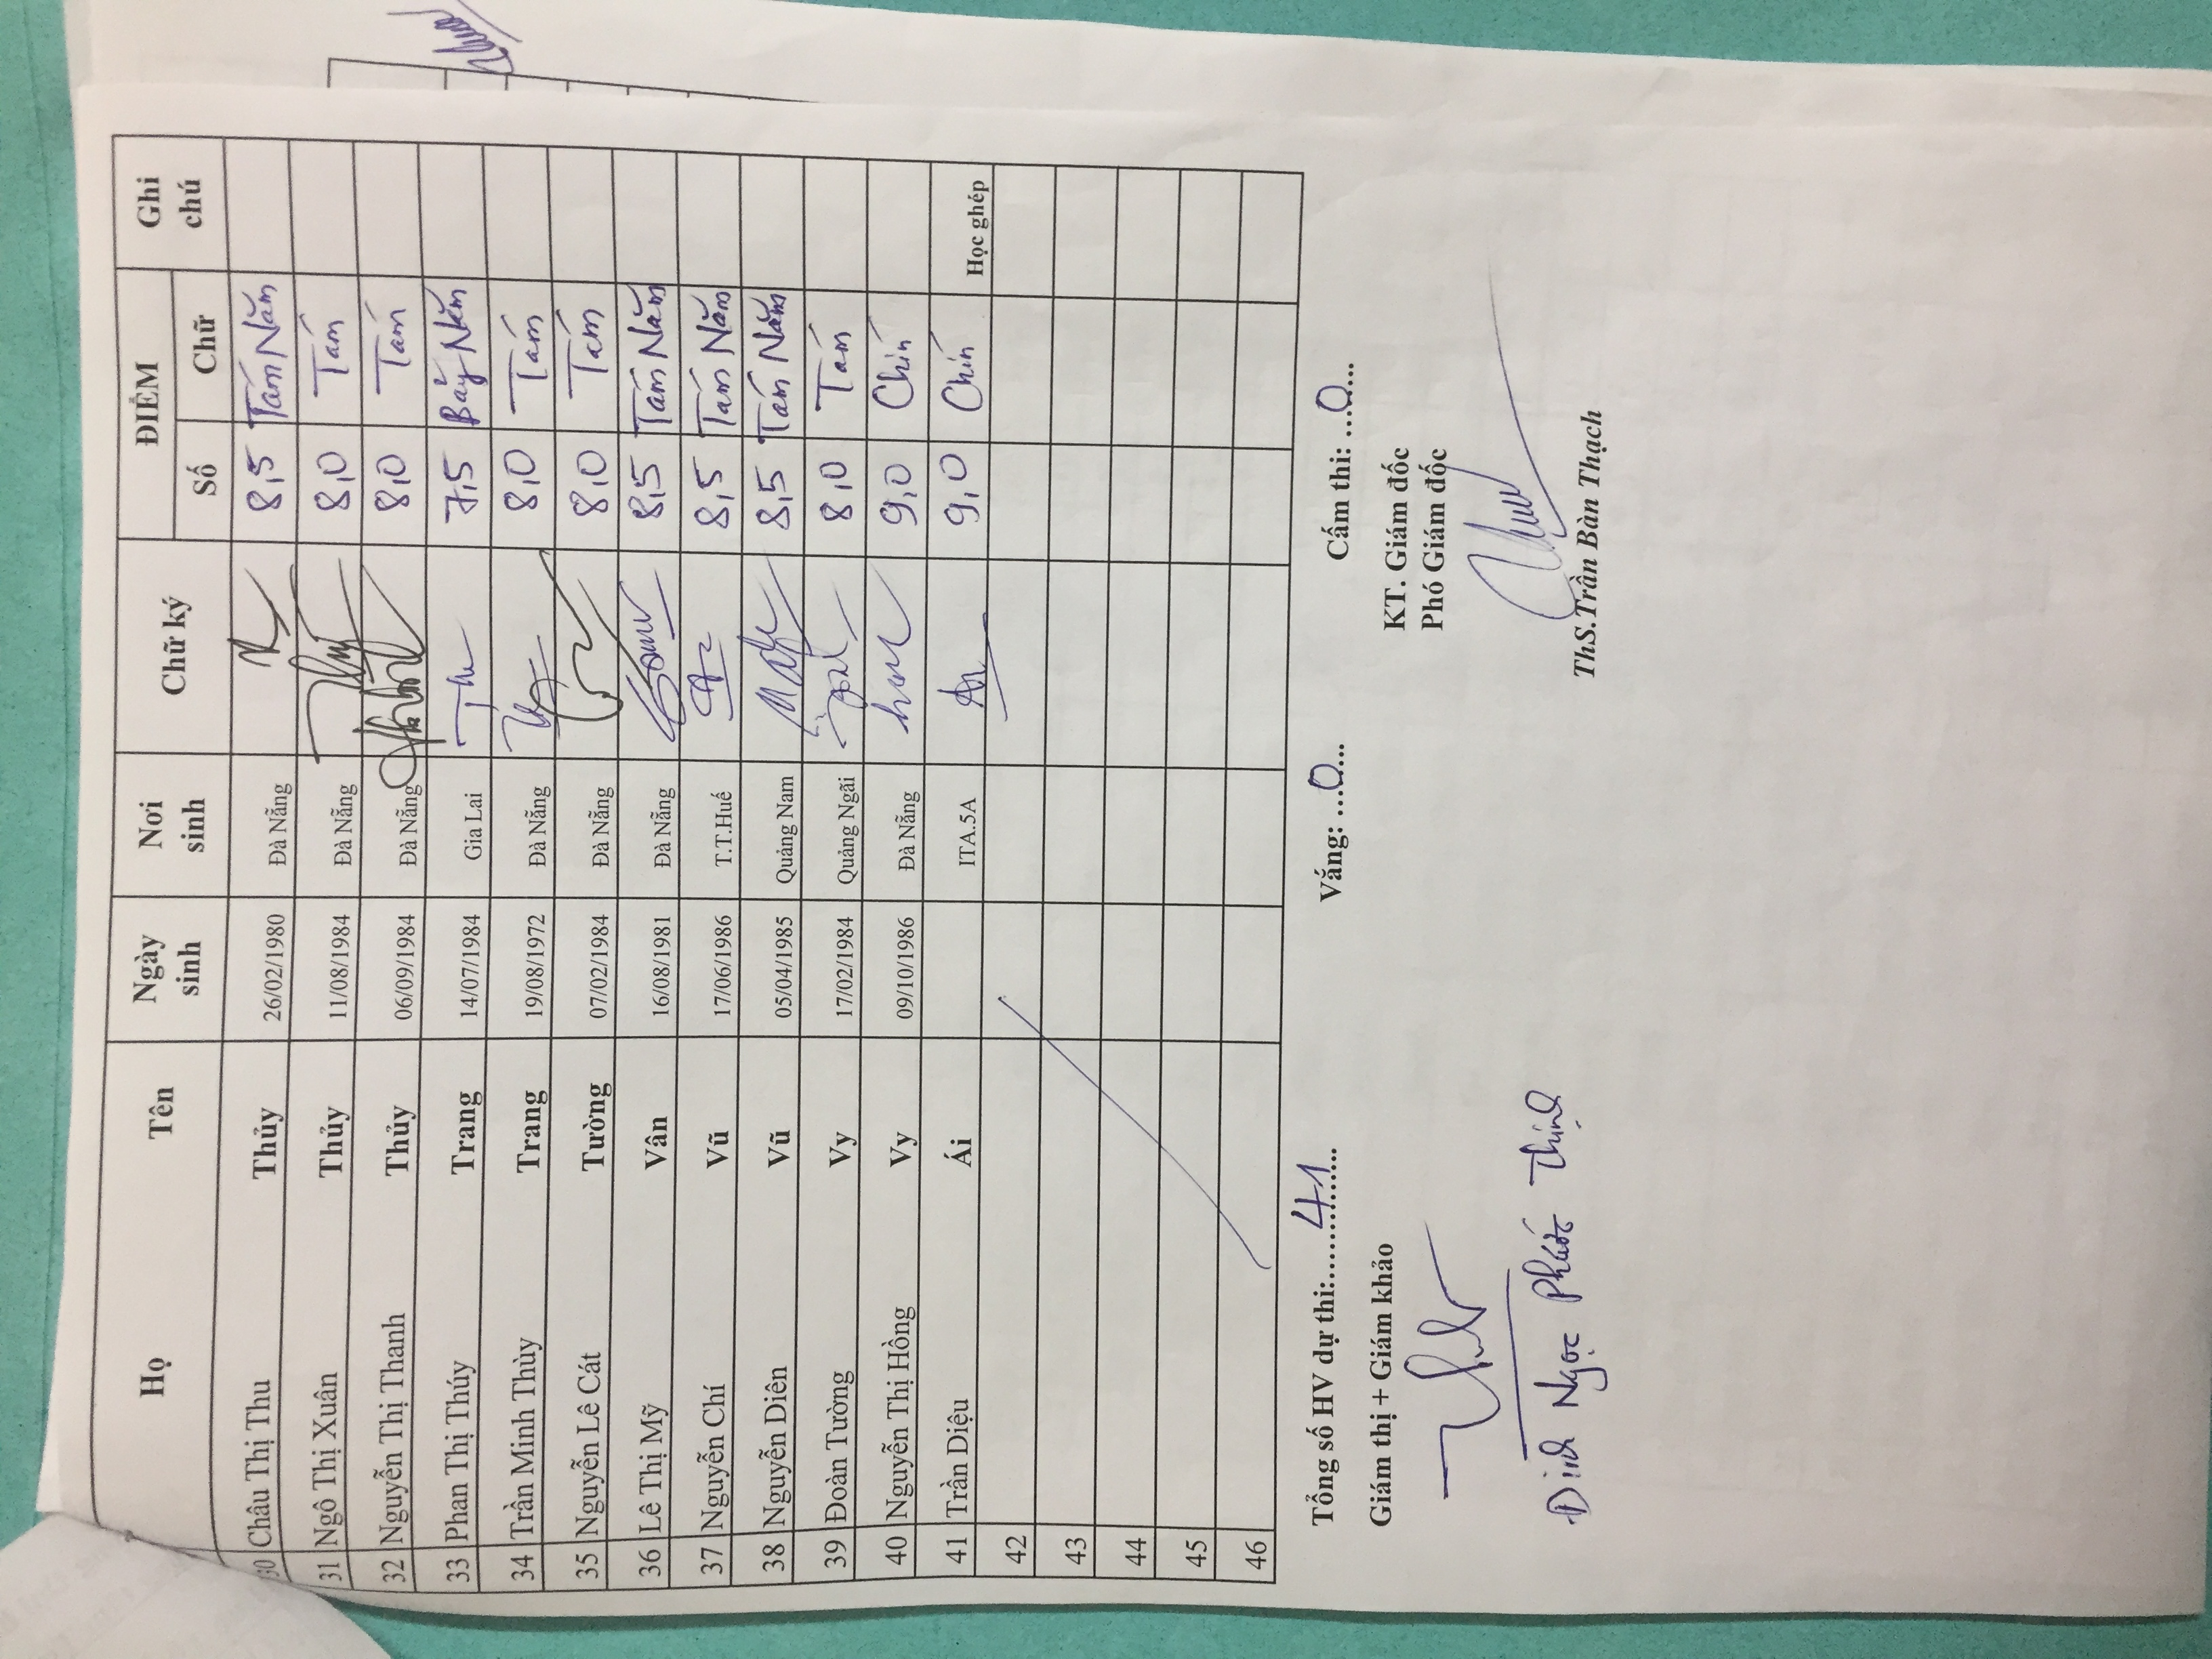 Họ Tên Ngày sinh Nơi sinh Chữ ký ĐIỂM Ghi chú
Số Chữ
30 Châu Thị Thu Thủy 26/02/1980 Đà Nẵng 8,5 Tám Năm
31 Ngô Thị Xuân Thủy 11/08/1984 Đà Nẵng 8,0 Tám
32 Nguyễn Thị Thanh Thủy 06/09/1984 Đà Nẵng 8,0 Tám
33 Phan Thị Thúy Trang 14/07/1984 Gia Lai 7,5 Bảy Năm
34 Trần Minh Thùy Trang 19/08/1972 Đà Nẵng 8,0 Tám
35 Nguyễn Lê Cát Tường 07/02/1984 Đà Nẵng 8,0 Tám
36 Lê Thị Mỹ Vân 16/08/1981 Đà Nẵng 8,5 Tám Năm
37 Nguyễn Chí Vũ 17/06/1986 T.T.Huế 8,5 Tám Năm
38 Nguyễn Diên Vũ 05/04/1985 Quảng Nam 8,5 Tám Năm
39 Đoàn Tường Vy 17/02/1984 Quảng Ngãi 8,0 Tám
40 Nguyễn Thị Hồng Vy 09/10/1986 Đà Nẵng 9,0 Chín
41 Trần Diệu Ái ITA.5A 9,0 Chín Học ghép
42
43
44
45
46
Tổng số HV dự thi:.....41..... Vắng: ...0.... Cấm thi: ...0....
Giám thị + Giám khảo KT. Giám đốc
Phó Giám đốc
Đinh Ngọc Phước Thịnh ThS.Trần Bàn Thạch